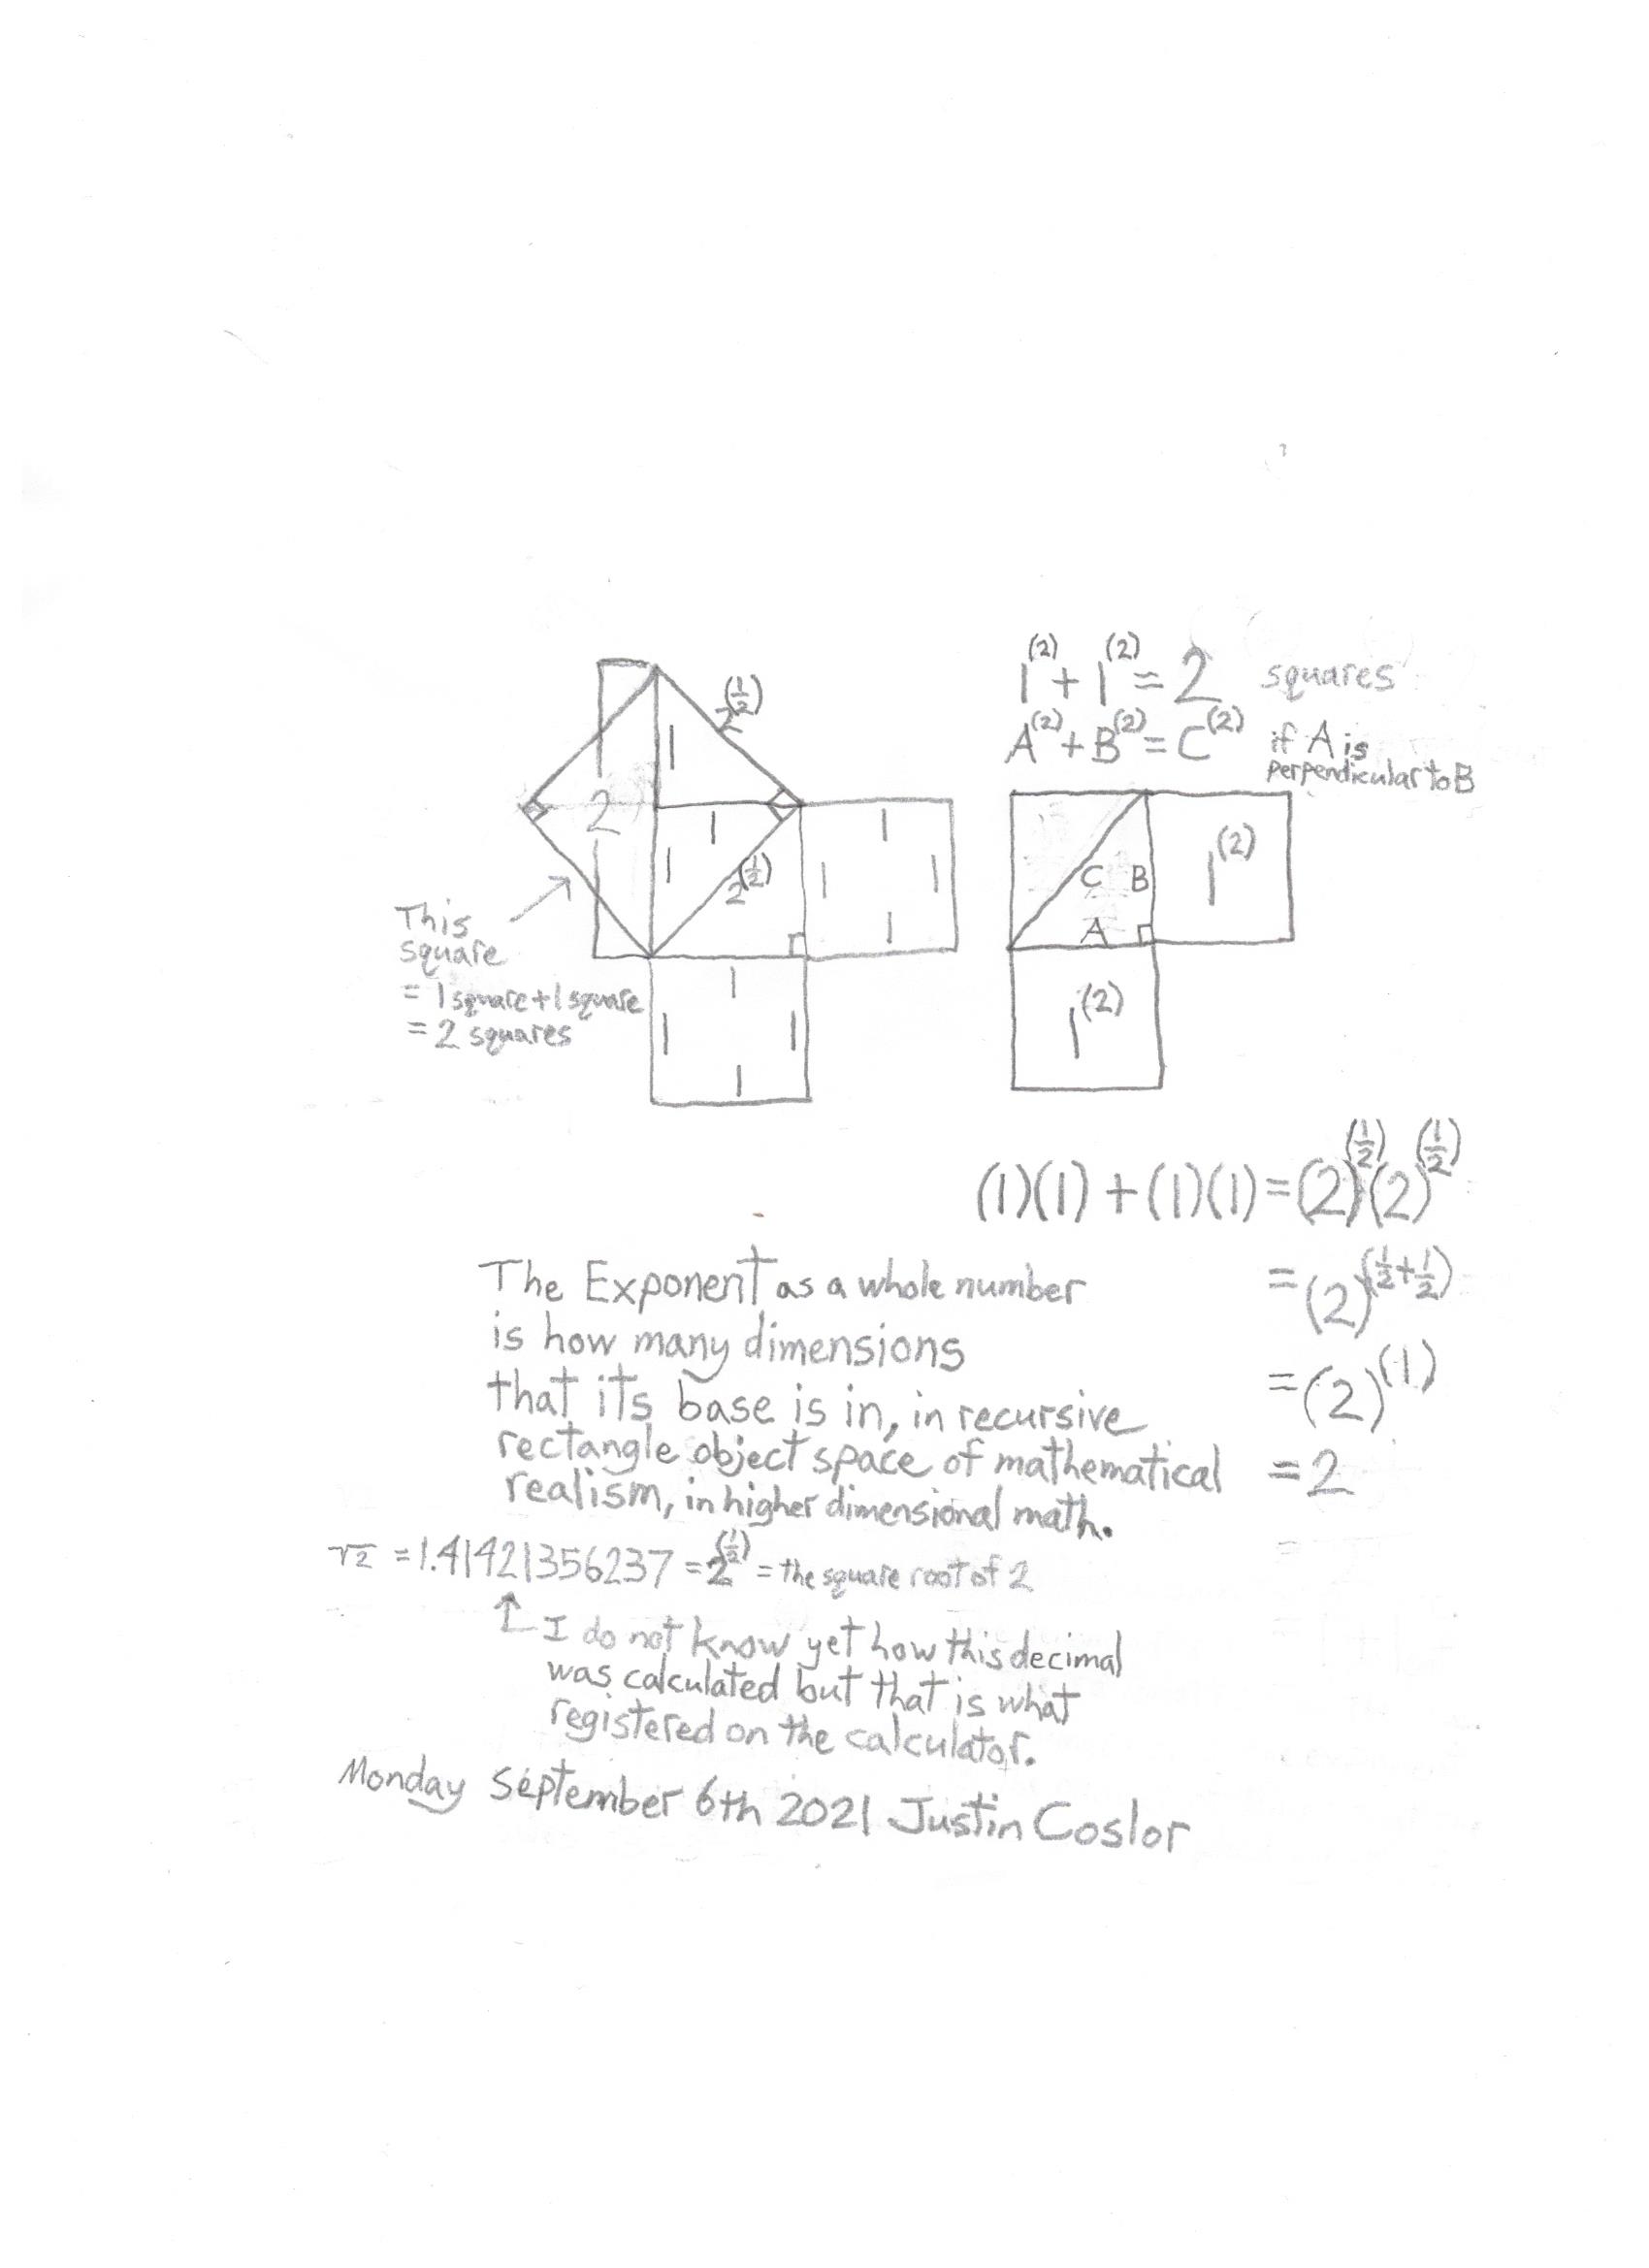 1^(2) + 1^(2) = 2 squares
A^(2) + B^(2) = C^(2) if A is
perpendicular to B
2^(1/2)
1
2
1
1
2^(1/2)
1
1
1
1
C
B
A
1^(2)
This
square
= 1 square + 1 square
= 2 squares
1
1
1
1
1^(2)
(1)(1) + (1)(1) = (2)^(1/2)(2)^(1/2)
= (2)^(1/2+1/2)
= (2)^(1)
= 2
The Exponent as a whole number
is how many dimensions
that its base is in, in recursive
rectangle object space of mathematical
realism, in higher dimensional math.
√2 = 1.41421356237 = 2^(1/2) = the square root of 2
↑ I do not know yet how this decimal
was calculated but that is what
registered on the calculator.
Monday September 6th 2021 Justin Coslor